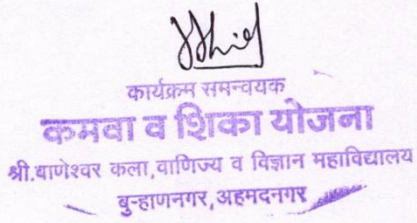 कार्यक्रम समन्वयक
कमवा व शिका योजना
श्री.बाणेश्वर कला,वाणिज्य व विज्ञान महाविद्यालय
बु-हाणनगर,अहमदनगर